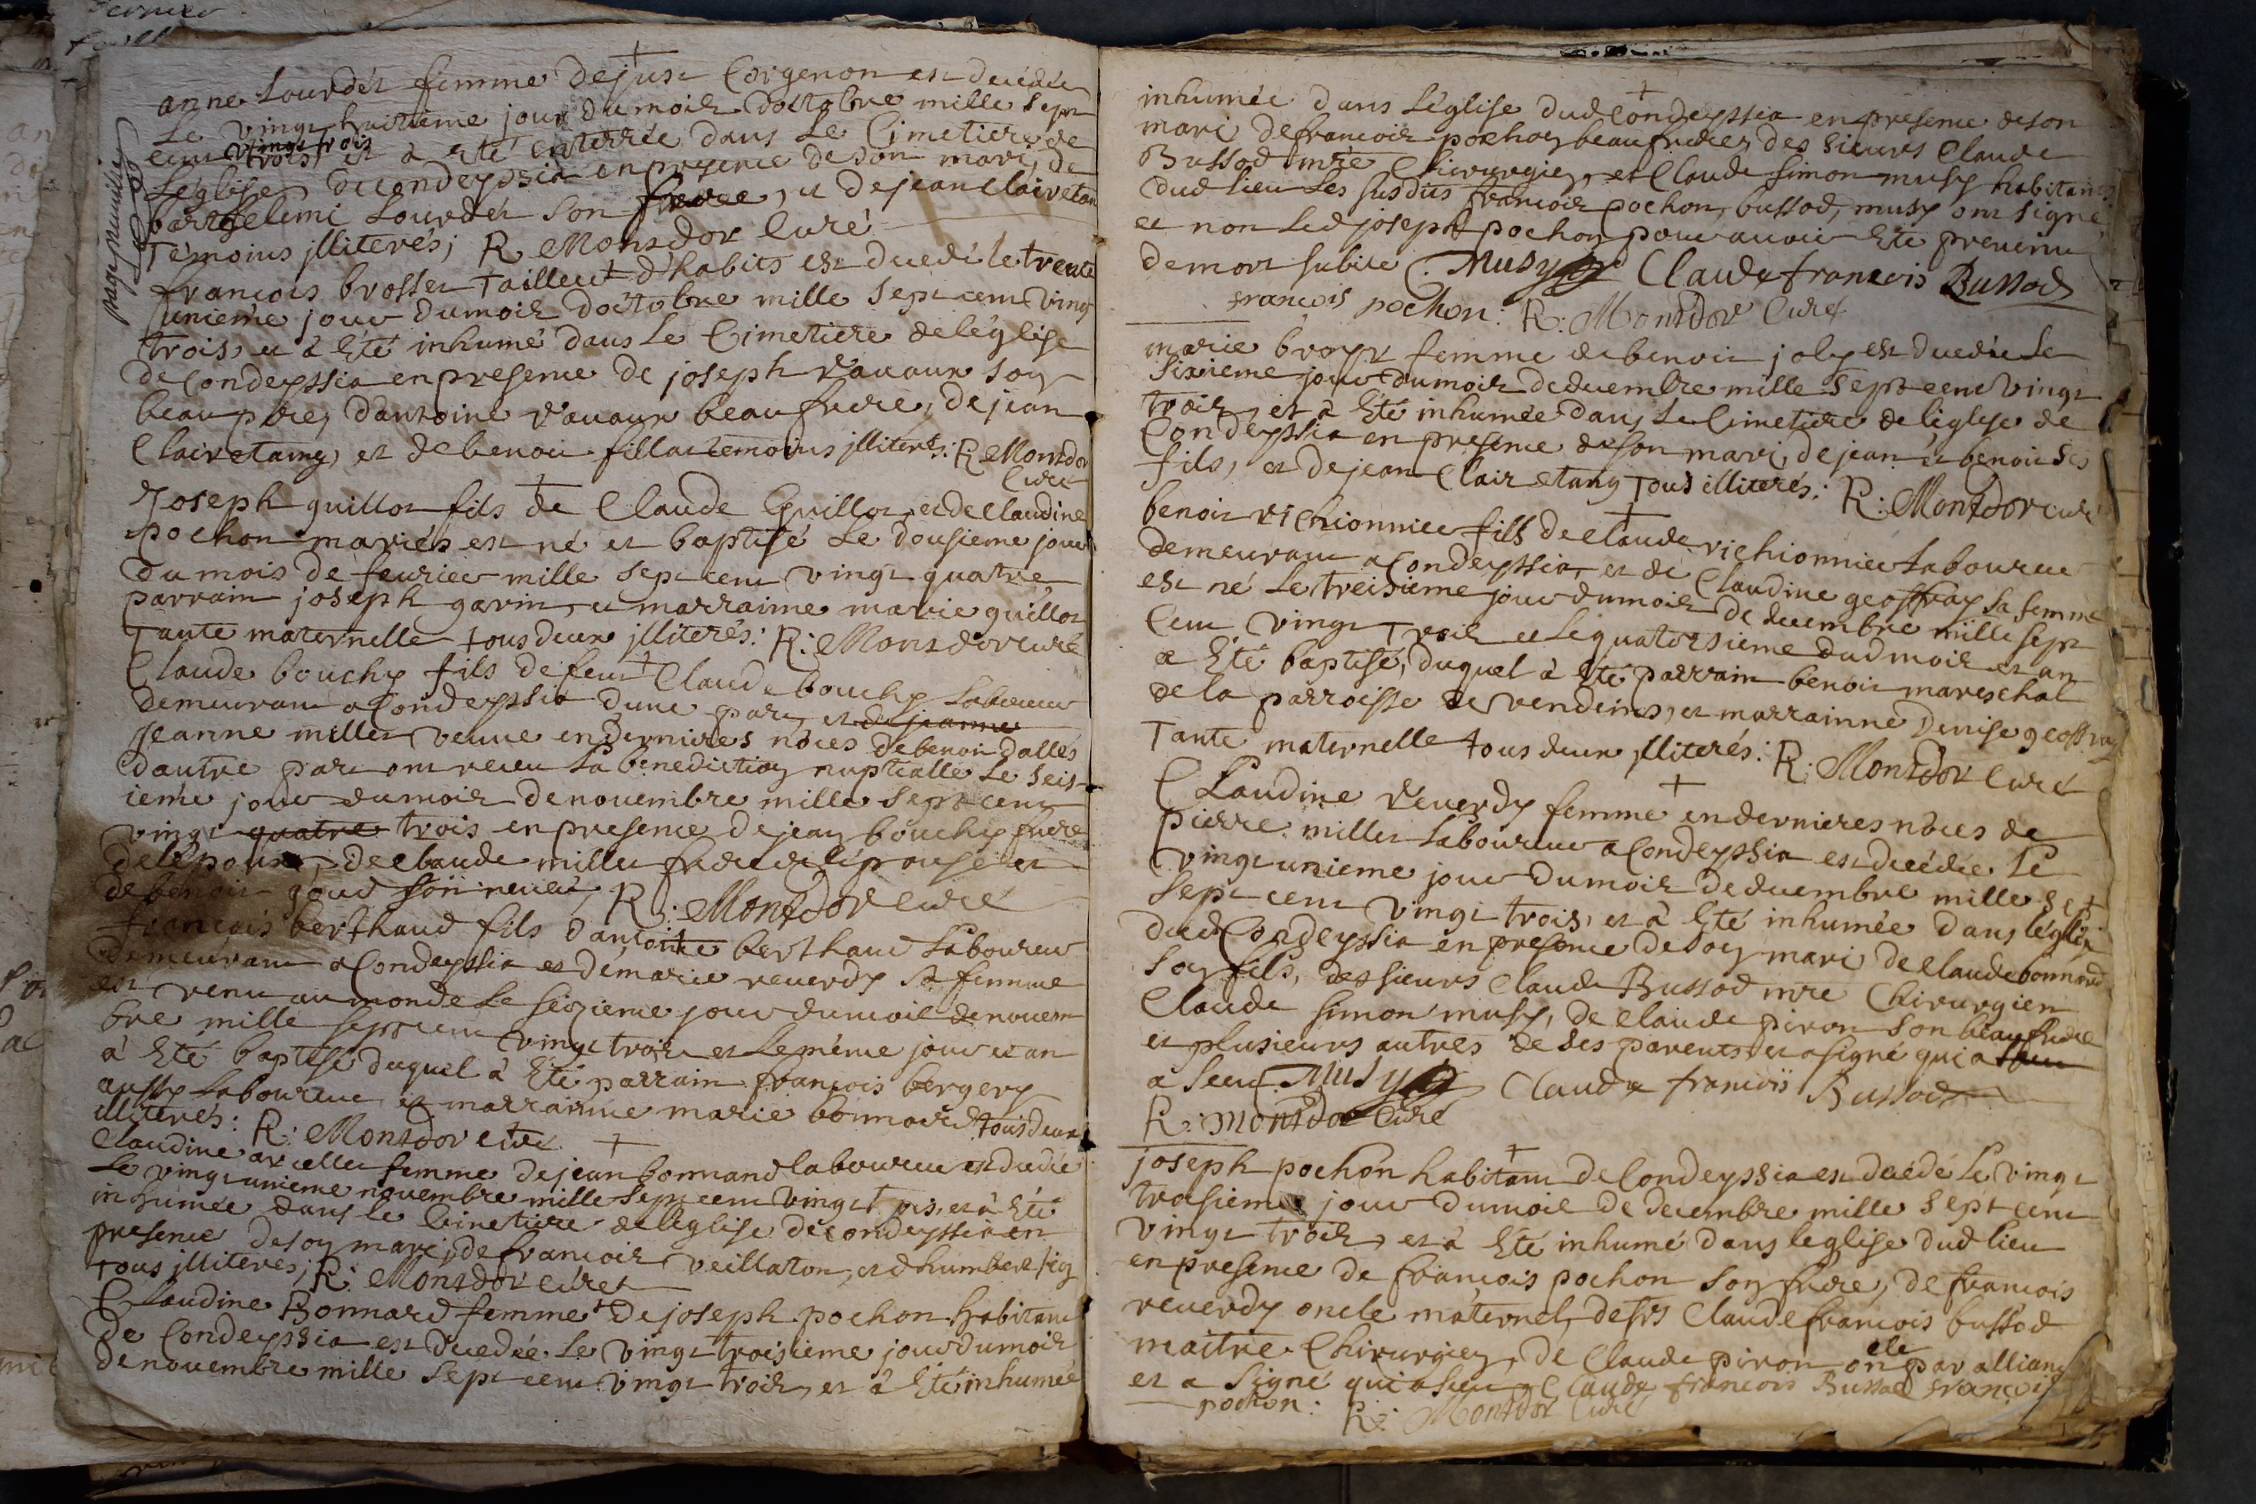 anne Lourdés femme de just Corgenon est decédée
Le vingt huitieme jour du mois doctobre mille sept
cent vingt trois, et à eté enterrée dans Le Cimetiere de
L'église decondeyssia en presence de son mari, de
barthelemi Lourdés son frere, et de jean clairetan
Témoins jlliterés; R Montdor Curé
françois brosses Tailleur d'habits est decedé le trente
unieme jour dumois doctobre mille sept cent vingt
trois, et à Eté inhumé dans Le Cimetiere de léglise
de Condeyssia en presence de joseph ravaux son
beau pere, d'antoine ravaux beau frere, de jean
Clairetang, et de benoit fillat temoins jlliterés: R Montdor
Curé
Joseph guillot fils de Claude Guillot, et de Claudine
pochon mariés est né et baptisé Le dousieme jour
du mois de feurier mille sept cent vingt quatre
parrain joseph garin, et marraine marie guillot
Tante maternelle tous deux jlliterés: R: Montdor curé
Claude bouchy fils de feu Claude bouchy Laboureur
demeurant a Condeyssia dune part, et de jeanne
Jeanne millet veuve en dernieres nôces de benoit dalles
dautre part ont receu La benediction nuptialle Le seis-
ieme jour dumois denovembre mille sept cent
vingt quatre trois en presence de jean bouchy frere
de lépoux, de claude millet frere de lépouse et
de benoit goud son neveu, R: Montdor curé
françois berthaud fils d'antoine berthaud Laboureur
demeurant a Condeyssia et de marie reverdy sa femme
est venu au monde Le seizieme jour dumois denovem
bre mille sept cent vingt trois et Le même jour et an
à Eté baptisé duquel à Eté parrain françois bergery
aussy Laboureur, et marrainne marie bonnard tous deux
illiterés: R: Montdor curé
Claudine arcelles femme de jean bonnand laboureur est decédée
Le vingt unieme novembre mille sept cent vingt trois, et à Eté
inhumée dans le Cimetiere de léglise decondeyssia en
presence de son mari, de francois veillaton, et d humbert
tous jlliterés; R: Montdor curé
Claudine Bonnard femme de joseph pochon habitant
de Condeyssia est decedée Le vingt troisieme jour dumois
denovembre mille sept cent vingt trois, et à Eté inhumée
inhumée dans L'église dud Condeyssia en presence de son
mari de francois pochon beaufrere, des sieurs Claude
Bussod mre Chirurgien, et Claude simon musy habitants
dud lieu Les susdits francois pochon, bussod, musy ont signé
et non Led joseph pochon pour avoir Eté prevenu
de mort subite. Musy Claude francois Bussod
françois pochon: R: Montdor Curé
marie broyt femme de benoit joly est decedée Le
sixieme jour dumois de decembre mille sept cent vingt
trois, et à Eté inhumée dans Le Cimetiere de léglise de
Condeyssia en presence de son mari, de jean et benoit ses
fils, et de jean Clair etang Tous illiterés: R: Montdor curé
benoit richionnier fils de claude richionnier Laboureur
demeurant a Condeyssia, et de Claudine geoffray sa femme
est né Le treisieme jour dumois de decembre mille sept
cent vingt trois et Le quatorsieme dud mois et an
a Eté baptisé, duquel à Eté parrain benoit mareschal
de la parroisse de vendeins, et marrainne Denise geoffray
Tante maternelle tous deux jlliterés: R: Montdor Curé
Claudine reverdy femme en dernieres nôces de
pierre millet Laboureur a Condeyssia est decédée Le
vingt unieme jour dumois de decembre mille
sept cent vingt trois, et à Eté inhumée dans léglise
dud Condeyssia en presence de son mari, de claude bonnard
son fils, des sieurs Claude Bussod mre Chirurgien
Claude simon musy, de claude piron son beau frere
et plusieurs autres de ses parents et a signé qui a sceu
a sceu Musy Claude francois Bussod
R: Montdor Curé
joseph pochon habitant de Condeyssia est decédé Le vingt
troisieme jour dumois de decembre mille sept cent
vingt trois, et à Eté inhumé dans léglise dud lieu
en presence de françois pochon son frere, de francois
reverdy oncle maternel, de srs Claude francois bussod
maitre Chirurgien, de Claude piron oncle par alliance
et a signé qui a sceu, Claude francois Bussod françois
pochon: R: Montdor Curé